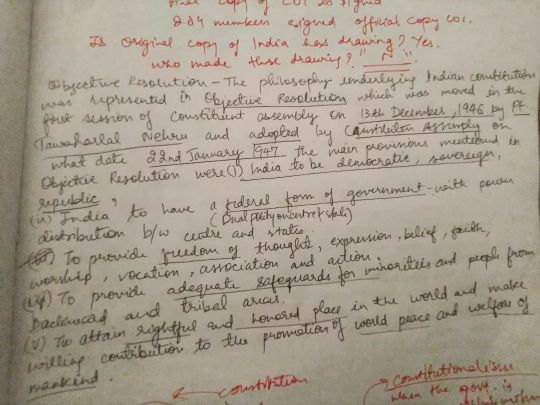 Final copy of COI is signed
284 members signed official copy COI.
Is Original copy of India has drawing? Yes.
who made these drawing? "N"
Objective Resolution - The philosophy underlying Indian constitution
was represented in Objective Resolution which was moved in the
first session of Constituent assembly on 13th December, 1946 by Pt
Jawaharlal Nehru and adopted by Constitution Assembly on
what date 22nd January 1947 The main provisions mentioned in
Objective Resolution were (i) India to be democratic, sovereign,
republic,
(ii) India to have a federal form of government with power
(Dual polity centre & state)
distribution b/w centre and states.
(iii) To provide freedom of thought, expression, belief, faith,
worship, vocation, association and action.
(iv) To provide adequate safeguards for minorities and people from
backward and tribal areas.
(v) To attain rightful and honored place in the world and make
willing contribution to the promotion of world peace and welfare of
mankind.
constitution
constitutionalism
when the govt. is